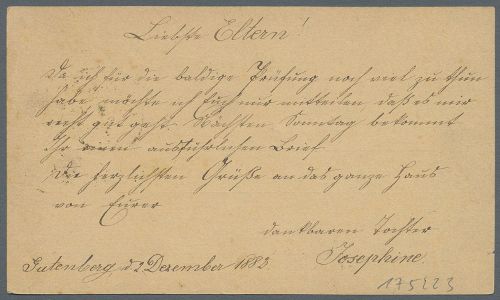 Liebste Eltern!
Da ich für die baldige Prüfung noch viel zu thun
habe, möchte ich Euch nur mitteilen daß es mir
recht gut geht. Nächsten Sonntag bekommt
Ihr einen ausführlichen Brief.
Die herzlichsten Grüße an das ganze Haus
von Eurer
dankbaren Tochter
Josephine.
Gutenberg, d 2 Dezember 1883
175223